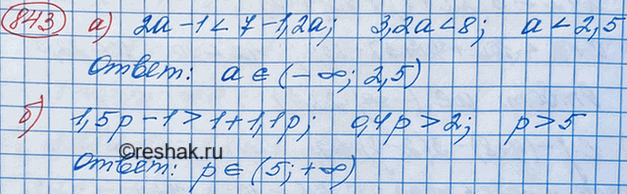 843 а) 2а - 1 < 7 - 1,2а; 3,2а < 8; а < 2,5
Ответ: а ∈ (-∞; 2,5)
б) 1,5р - 1 > 1 + 1,1р; 0,4р > 2; р > 5
©reshak.ru
Ответ: р ∈ (5; +∞)